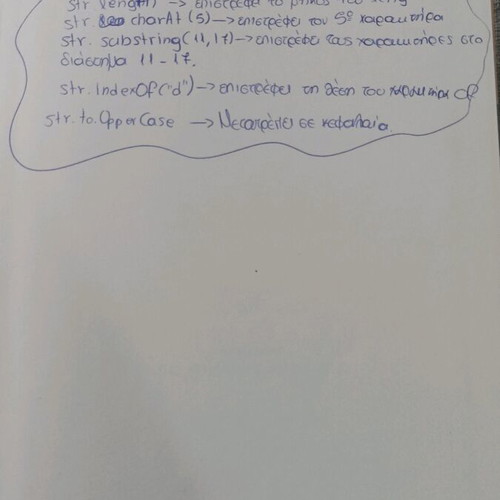 str. length) → επιστρέφει το μήκος του
str. charAt (5) → επιστρέφει τον 5º χαρακτήρα
str. substring (11,17) → επιστρέφει τους χαρακτήρες στο
διάστημα 11 - 17.
str. IndexOf("d") → επιστρέφει τη θέση του χαρακτήρα d
str. to.UpperCase → Μετατρέπει σε κεφαλαία.